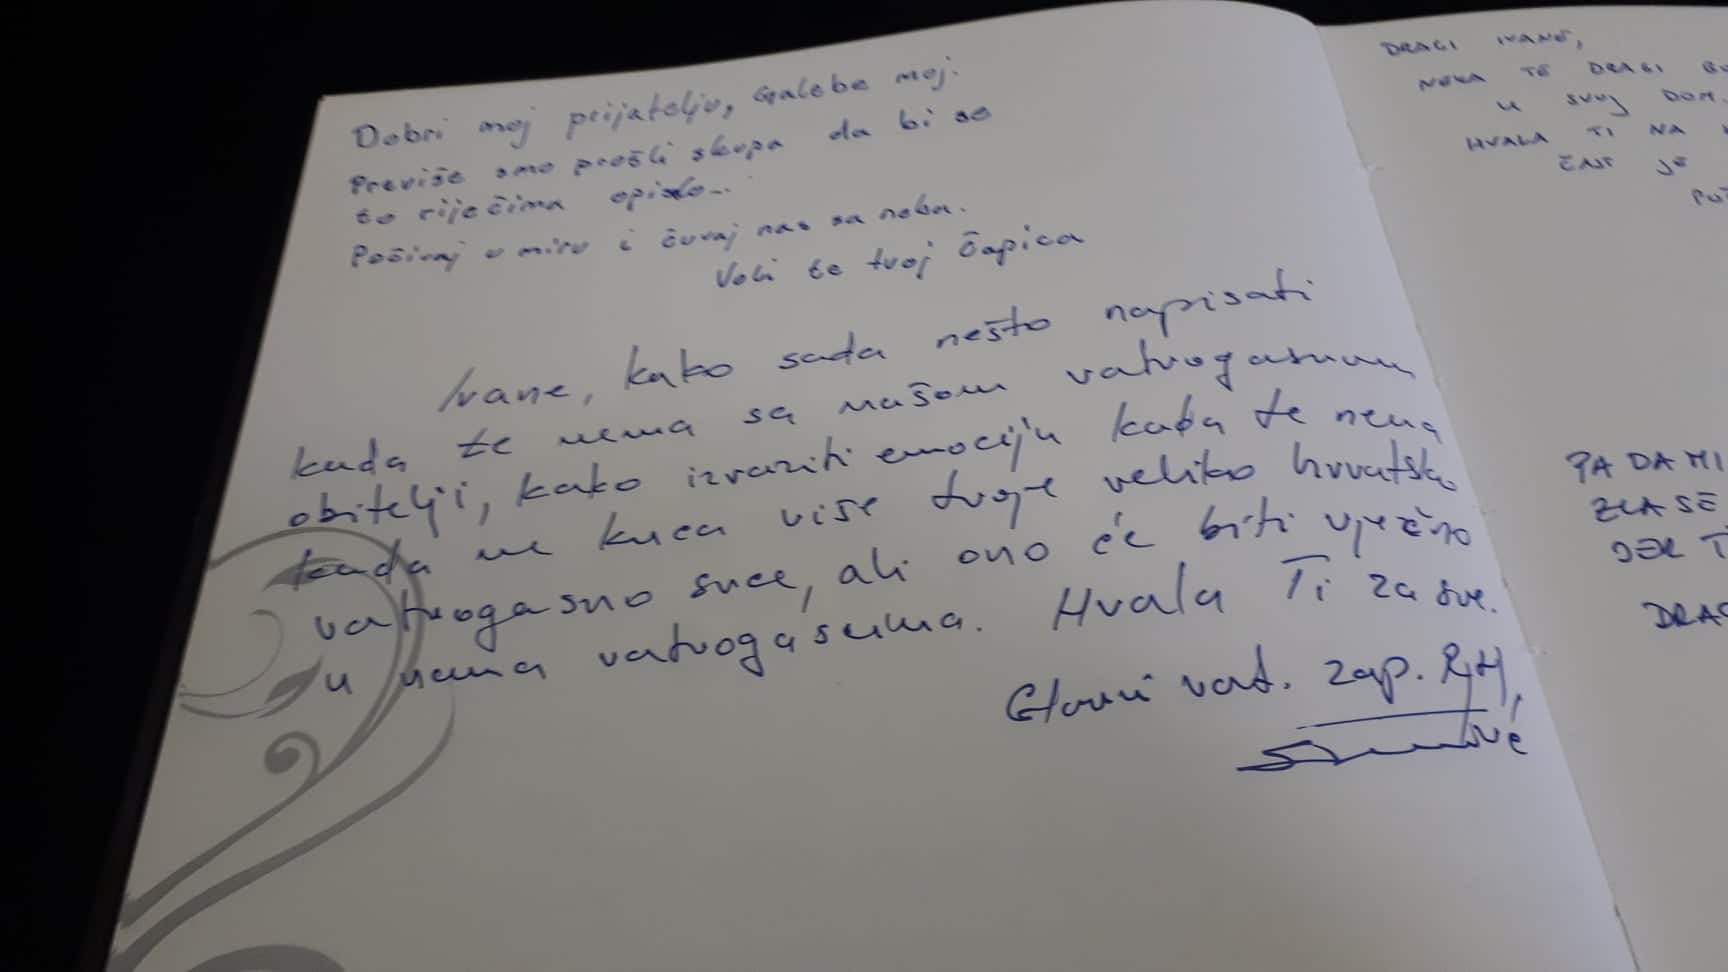 Dobri moj prijatelju, Galebe moj.
Previše smo prošli skupa da bi se
to riječima opislo...
Počivaj u miru i čuvaj nas sa neba.
Voli te tvoj Čapica
Ivane, kako sada nešto napisati
kada te nema sa našom vatrogasnom
obitelji, kako izraziti emociju kada te nema
kada ne kuca više tvoje veliko hrvatsko
vatrogasno srce, ali ono će biti vječno
u nama vatrogascima. Hvala Ti za sve.
Glavni vat. zap. RH,
DRAGI IVANE,
NEKA TE DRAGI
U SVOJ DOM,
HVALA TI NA
ČAST JE
PADAMI
ZLA SE
JER